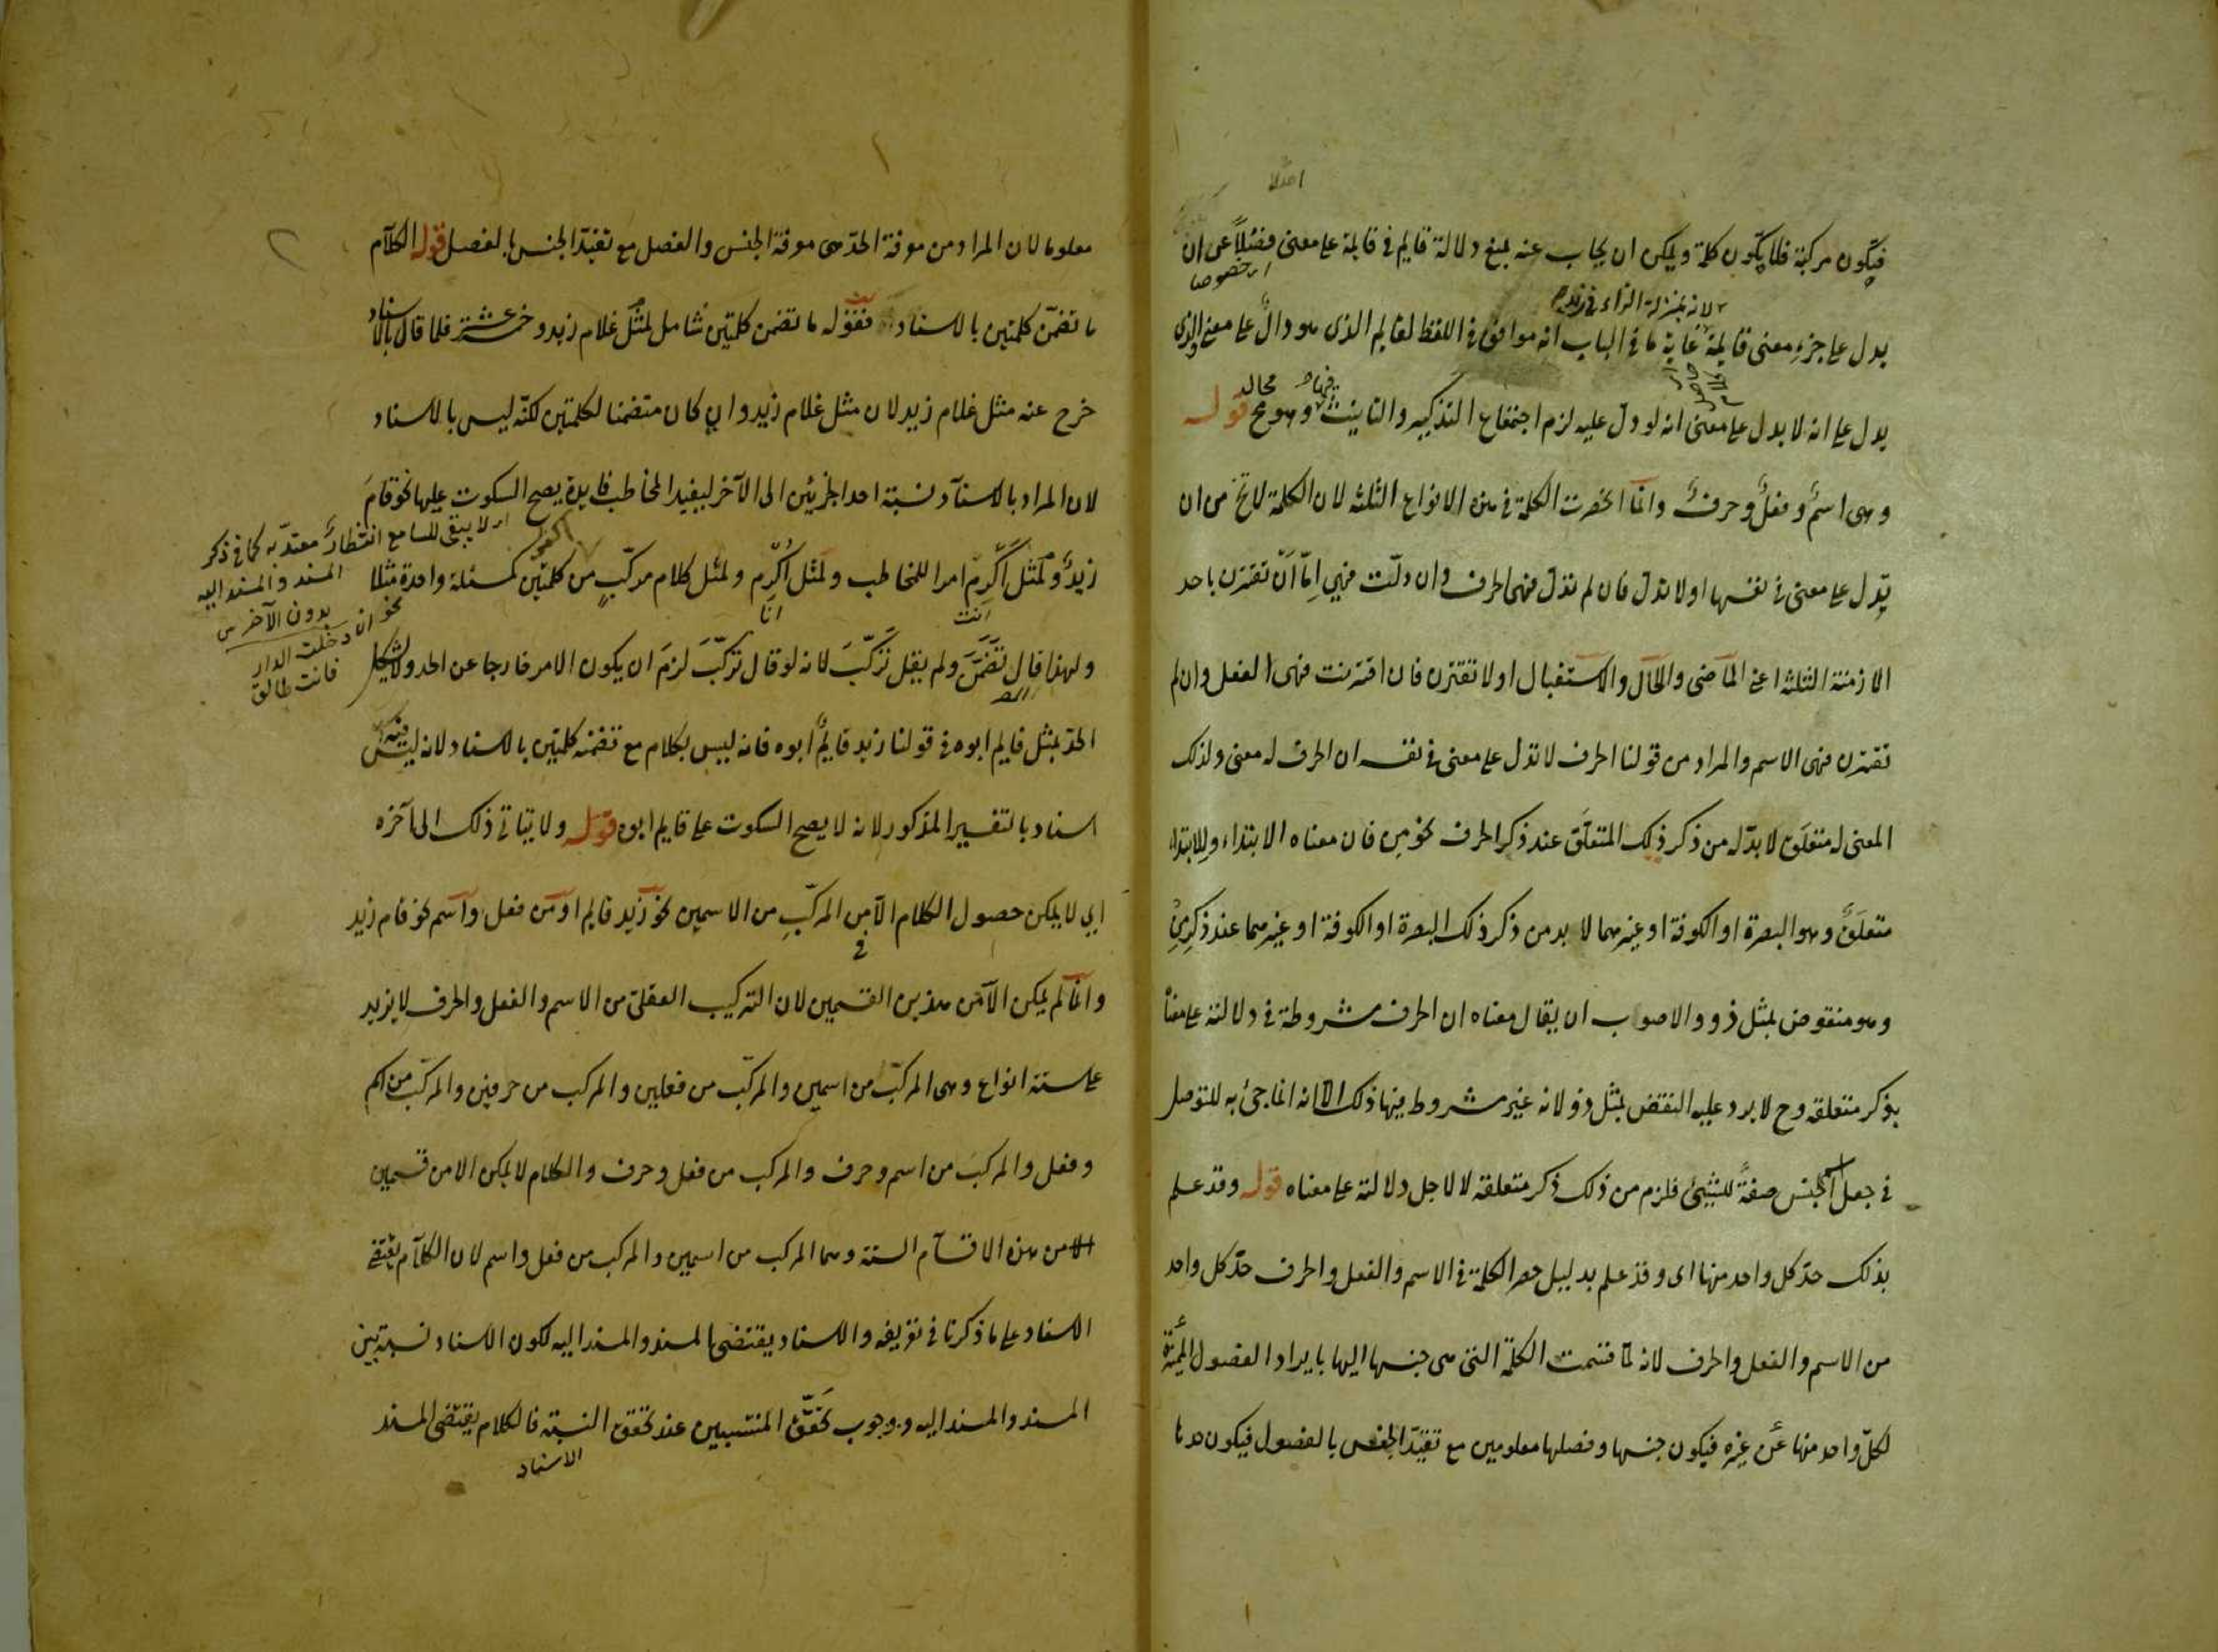 فيكون مركبة فلا يكون كلمة ويمكن ان يجاب عنه بمنع دلالة قايم في قايمة على معنى فضلا عن ان
يدل على جزء معنى قايمة غاية ما في الباب انه موافق في اللفظ لقايم الذى هو دال على معنى والذى
يدل على انه لا يدل على معنى انه لو دل عليه لزم اجتماع التذكير والتانيث وهو مح قوله
وهى اسم وفعل وحرف وانما انحصرت الكلمة في هذه الانواع الثلثة لان الكلمة لا تخ من ان
تدل على معنى في نفسها اولا تدل فان لم تدل فهى الحرف وان دلت فهي اما ان تقترن باحد
الازمنة الثلثة اعنى الماضى والحال والاستقبال اولا تقترن فان اقترنت فهى الفعل وان لم
تقترن فهى الاسم والمراد من قولنا الحرف لا تدل على معنى في نفسه ان الحرف له معنى ولذلك
المعنى له متعلق لا بد له من ذكر ذلك المتعلق عند ذكر الحرف نحو من فان معناه الابتداء وللابتداء
متعلق وهو البصرة او الكوفة او غيرهما لا بد من ذكر ذلك البصرة او الكوفة او غيرهما عند ذكر من
وهو منقوض بمثل ذو والاصوب ان يقال معناه ان الحرف مشروطة في دلالته على معناه
بذكر متعلقه وح لا يرد عليه النقض بمثل ذو لانه غير مشروط فيها ذلك الا انه انما جئ به للتوصل
في جعل اسم الجنس صفة للشيئ فلزم من ذلك ذكر متعلقه لا لاجل دلالته على معناه قوله وقد علم
بذلك حد كل واحد منها اى وقد علم بدليل حصر الكلمة في الاسم والفعل والحرف حد كل واحد
من الاسم والفعل والحرف لانه لما قسمت الكلمة التى هى جنسها اليها بايراد الفصول المميزة
لكل واحد منها عن غيره فيكون جنسها وفصلها معلومين مع تقيد الجنس بالفصول فيكون حدها
اى خصوصا
لانه بمنزلة الزاء في زيد
معلوما لان المراد من معرفة الحد هى معرفة الجنس والفصل مع تقيد الجنس بالفصل قوله الكلام
ما تضمن كلمتين بالاسناد فقوله ما تضمن كلمتين شامل لمثل غلام زيد وخمسة عشر فلما قال بالاسناد
خرج عنه مثل غلام زيد لان مثل غلام زيد وان كان متضمنا لكلمتين لكنه ليس بالاسناد
لان المراد بالاسناد نسبة احد الجزئين الى الآخر ليفيد المخاطب فايدة يصح السكوت عليها نحو قام
زيد ولمثل اكرم امرا للمخاطب ولمثل اكرم ولمثل كلام مركب من كلمتين كمسئلة واحدة مثلا
ولهذا قال تضمن ولم يقل تركب لانه لو قال تركب لزم ان يكون الامر خارجا عن الحد ولا يشكل
الحد بمثل قايم ابوه في قولنا زيد قايم ابوه فانه ليس بكلام مع تضمنه كلمتين بالاسناد لانه ليس فيه
اسناد بالتفسير المذكور لانه لا يصح السكوت على قايم ابوه قوله ولا يتاتى ذلك الى آخره
اى لا يمكن حصول الكلام الا من المركب من الاسمين نحو زيد قايم او من فعل واسم نحو قام زيد
وانما لم يمكن الا من هذين القسمين لان التركيب العقلى من الاسم والفعل والحرف لا يزيد
على ستة انواع وهى المركب من اسمين والمركب من فعلين والمركب من حرفين والمركب من اسم
وفعل والمركب من اسم وحرف والمركب من فعل وحرف والكلام لا يمكن الا من قسمين
من هذه الاقسام الستة وهما المركب من اسمين والمركب من فعل واسم لان الكلام يقتضى
الاسناد على ما ذكرنا في تعريفه والاسناد يقتضى المسند والمسند اليه لكون الاسناد نسبة بين
المسند والمسند اليه ووجوب تحقق المنتسبين عند تحقق النسبة فالكلام يقتضى المسند
الاسناد
انت
انا
اى لا يبقى للسامع انتظار معتد به كما في ذكر
المسند والمسند اليه
بدون الآخر
نحو ان دخلت الدار
فانت طالق